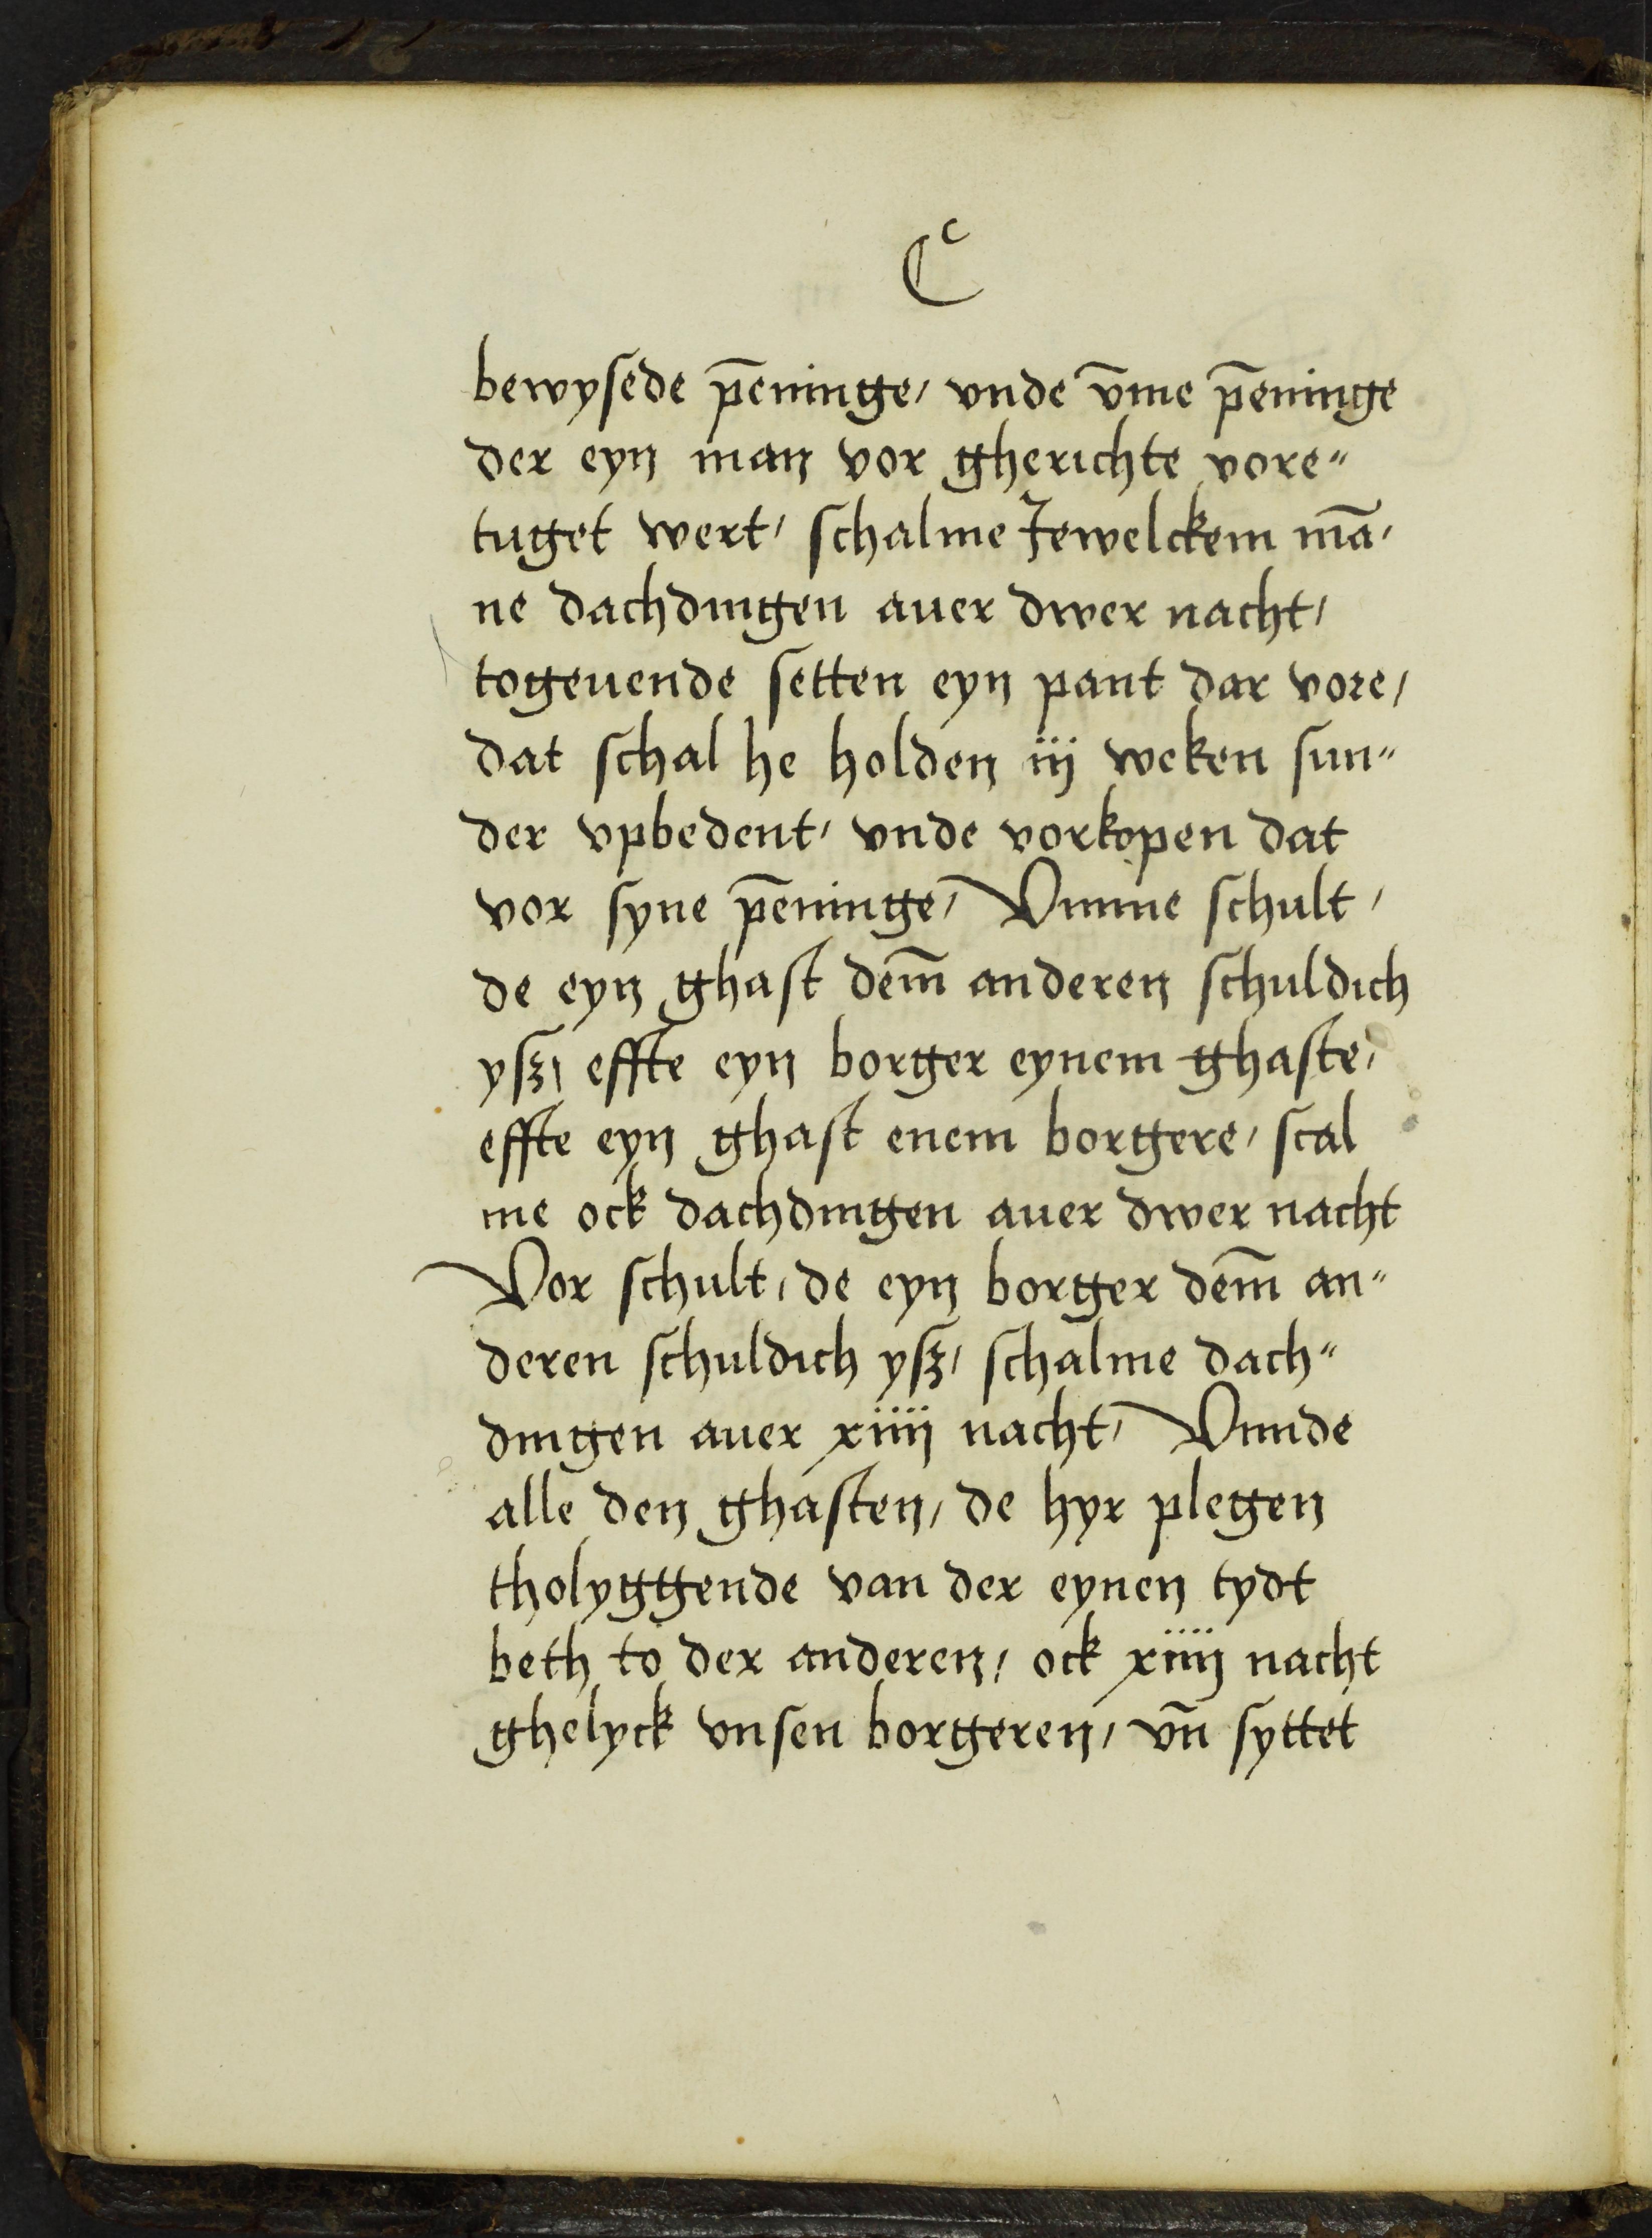 C
bewysede p̄eninge, vnde v̄me p̄eninge
der eyn man vor gherichte vore"
tuget wert, schalme Jewelckem mā,
ne dachdingen auer dwer nacht,
togeuende setten eyn pant dar vore,
dat schal he holden iij weken sun"
der vpbedent, vnde vorkopen dat
vor syne p̄eninge, Vmme schult,
de eyn ghast dem̄ anderen schuldich
ysz, effte eyn borger eynem ghaste,
effte eyn ghast enem borgere, scal
me ock dachdingen auer dwer nacht
Vor schult, de eyn borger dem̄ an"
deren schuldich ysz, schalme dach"
dingen auer xiiij nacht, Vnnde
alle den ghasten, de hyr plegen
tholyggende van der eynen tydt
beth to der anderen, ock xiiij nacht
ghelyck vnsen borgeren, vn̄ syttet